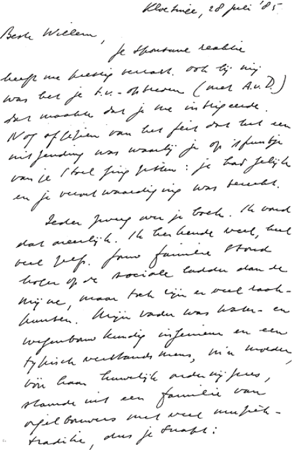 28 juli '85
Beste Willem,
je spontane reactie
heeft me prettig verrast. Ook bij mij
was het je t.v.-optreden (met A.v.D.)
dat maakte dat je me intrigeerde.
Nog afgezien van het feit dat het een
uitzending was waarbij je op 't puntje
van de stoel ging zitten: je had gelijk
en je verontwaardiging was terecht.
Ieder zweeg over je boek. Ik vond
dat oneerlijk. Ik herkende veel, heel
veel zelf. Jouw familie stond
hoger op de sociale ladder dan de
mijne, maar toch zijn er veel raak-
punten. Mijn vader was water- en
wegenbouwkundig ingenieur en een
typisch verstandsmens, m'n moeder,
vóór haar huwelijk onderwijzeres,
stamde uit een familie van
orgelbouwers met veel muziek-
traditie, dus je snapt: